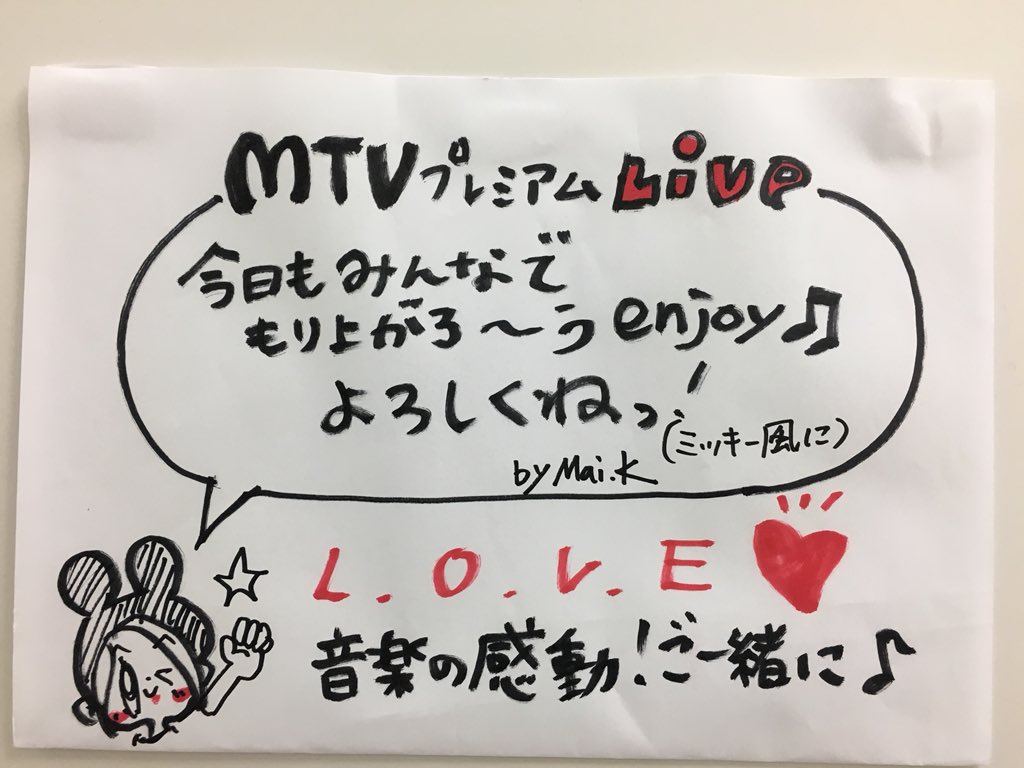 MTVプレミアムLive
今日もみんなで
もり上がろ〜うenjoy♫
よろしくねっ!
(ミッキー風に)
by Mai.K
L.O.V.E
音楽の感動!ご一緒に♪